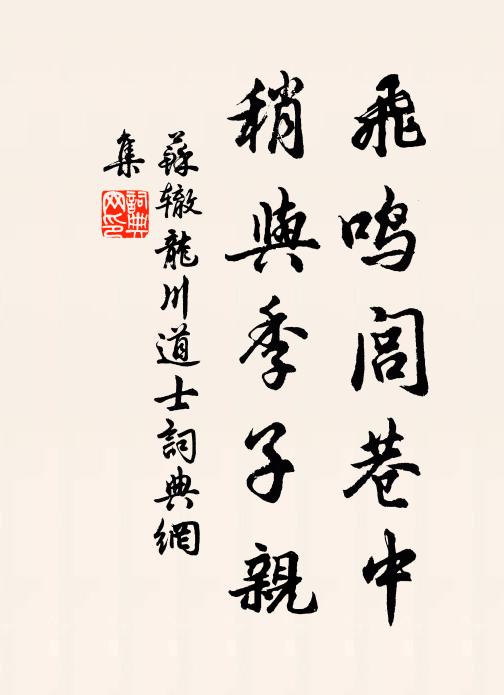 飛鸣閭巷中
稍與季子親
蘇辙龍川道士詞典網
集
詞典
网印